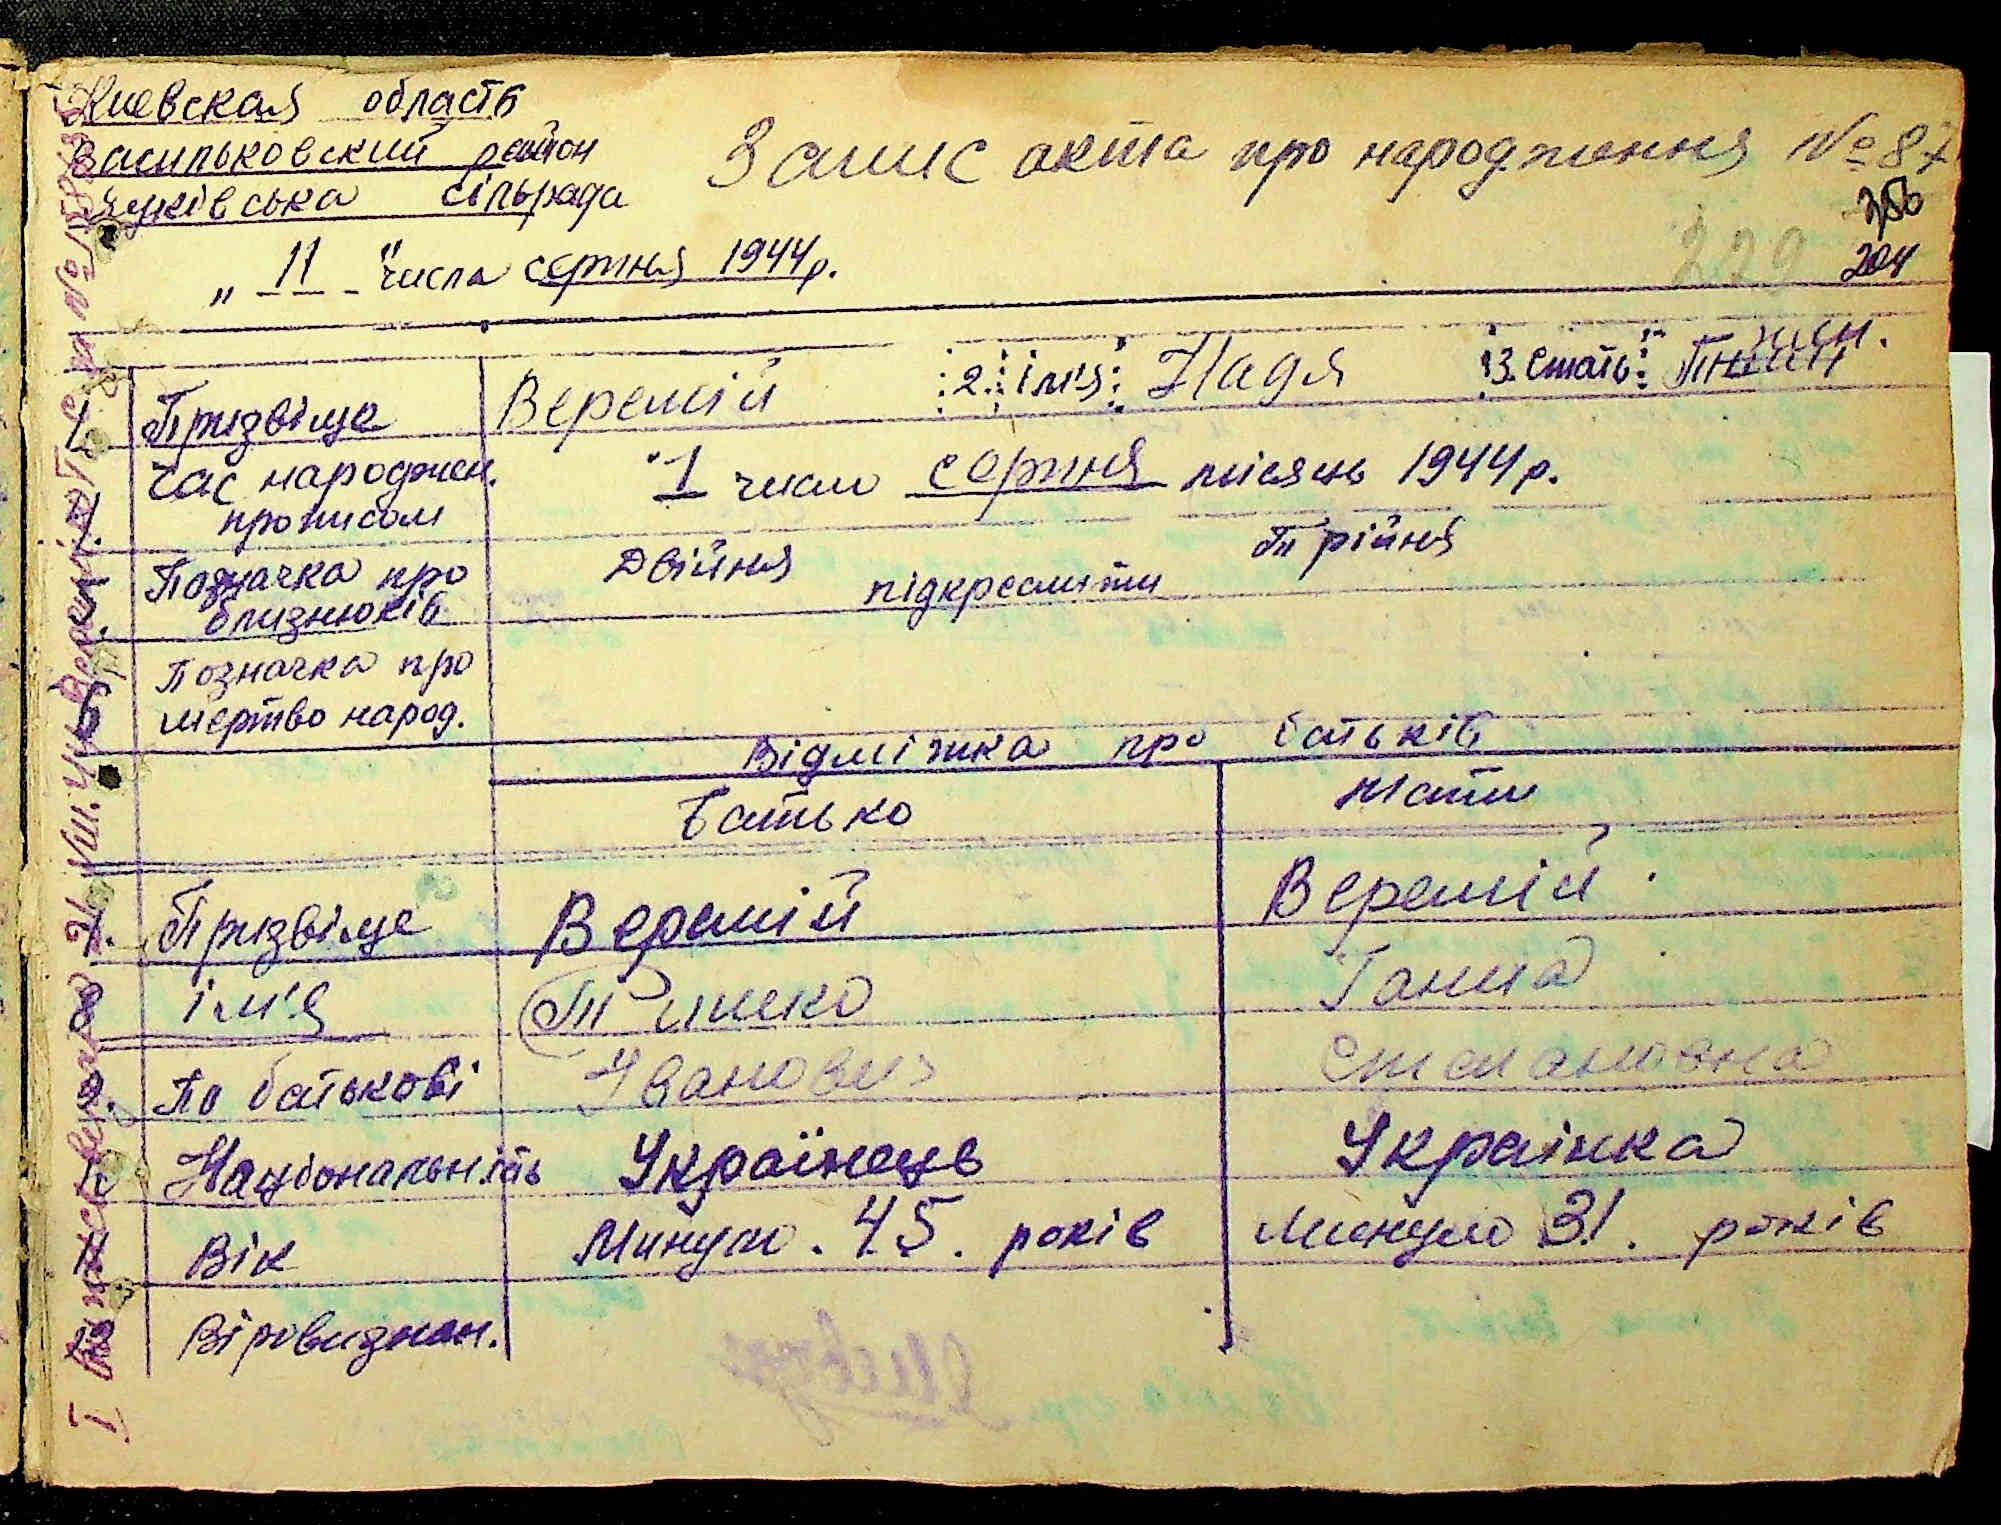 Киевская область
Васильковский район
сільрада
Запис акта про народження № 87
256
229
204
„ 11 " числа серпня 1944 р.
1. Призвіще Веремій 2. ім'я: Надя 3. Стать: жін.
Час народжен. прописом 1 число серпня місяць 1944 р.
Позначка про близнюків Двійня підкреслити Трійня
Позначка про мертво народ.
Відмітка про батьків
Батько Мати
7. Призвіще Веремій Веремій
8 ім'я Тимко Ганна
9. По батькові Іванович Степановна
Національність Українець Українка
Вік Минуло. 45. років Минуло 31. років
Віровизнан.